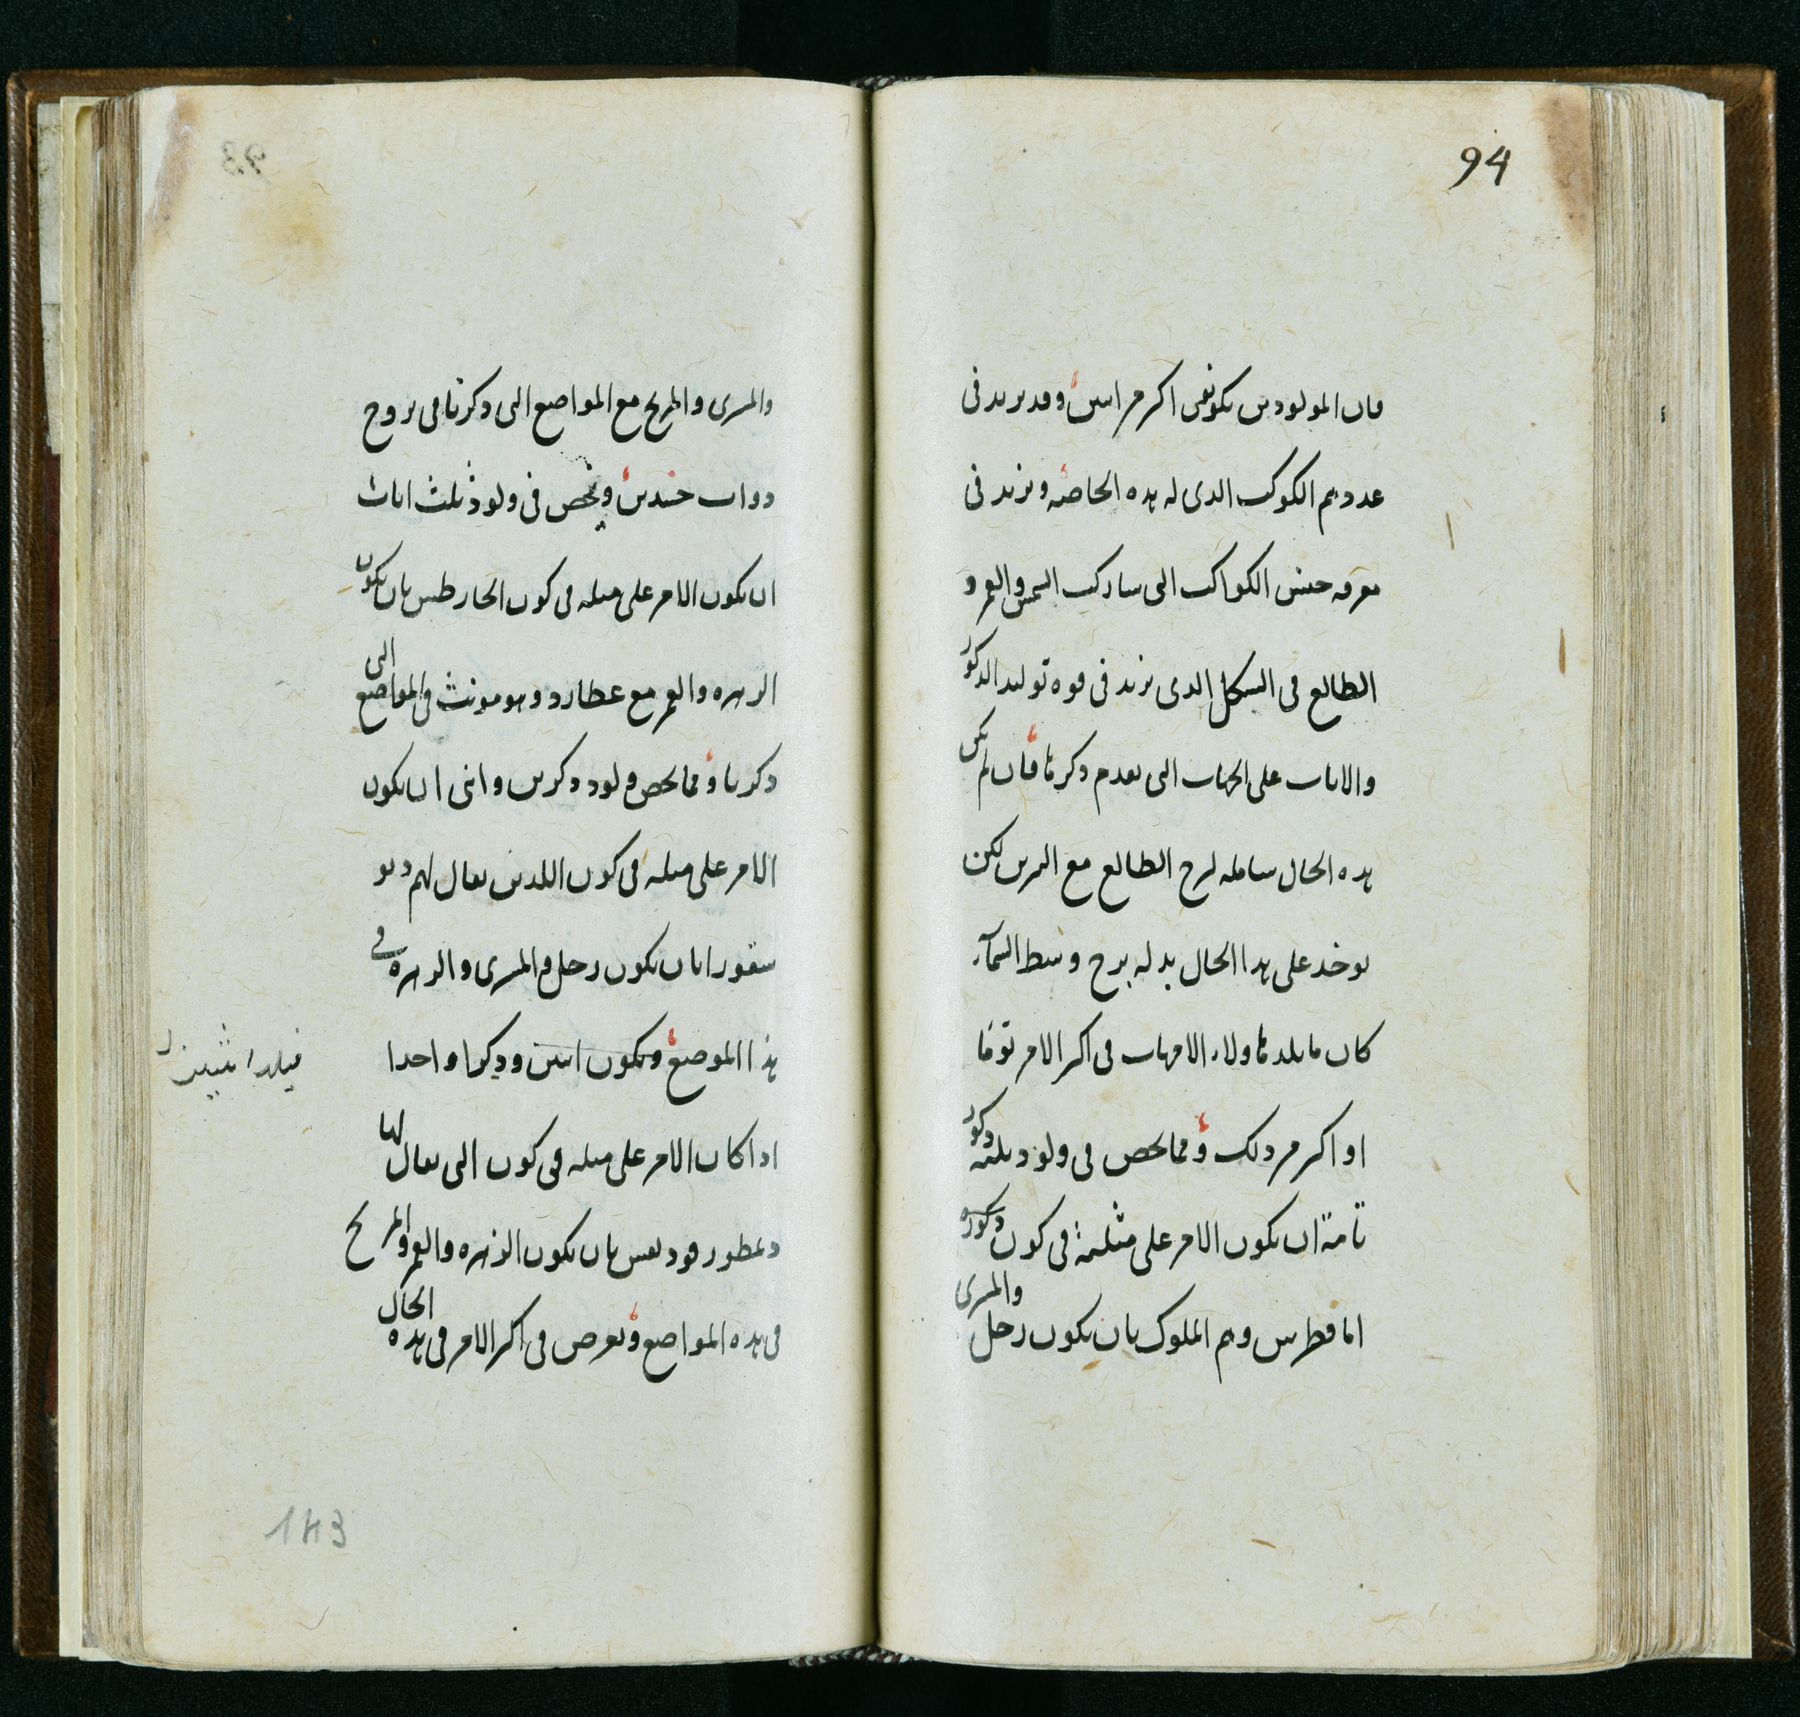 94
فان المولودين يكونون اكثر من اثنين وقد يزيد فى
عددهم الكوكب الذى له هذه الخاصة ويزيد فى
معرفة جنس الكواكب التى تشارك الشمس والقمر و
الطالع فى الشكل الذى يزيد فى قوة توليد الذكور
والاناث على الجهات التى تقدم ذكرنا فان لم يكن
هذه الحال شاملة لبرج الطالع مع النيرين لكن
يوخذ على هذا الحال بدله برج وسط السماء
كان ما يلد هاولاء الامهات فى اكثر الامر توما
او اكثر من ذلك ومما يخص فى ولود ثلثة ذكور
تامة ان يكون الامر على مثلثة فى كون ذكوره
اناقطرس وهم الملوك بان يكون زحل والمشترى
والمشترى والمريخ مع المواضع التى ذكرنا فى بروج
ذوات جسدين ويخص فى ولود ثلث اناث
ان يكون الامر على مثله فى كون الخارطس بان يكون
الزهره والقمر مع عطارد وهو مونث فى المواضع التى
ذكرنا ومما يخص ولود ذكرين وانثى ان يكون
الامر على مثله فى كون اللذين يقال لهم ديو
سقورا بان يكون زحل والمشترى والزهره فى
هذا الموضع ويكون اثنين وذكرا واحدا
اذا كان الامر على مثله فى كون التى يقال لها
ديمطور فود بان يكون الزهره والقمر والمريخ
فى هذه المواضع ويعرض فى اكثر الامر فى هذه الحال
143